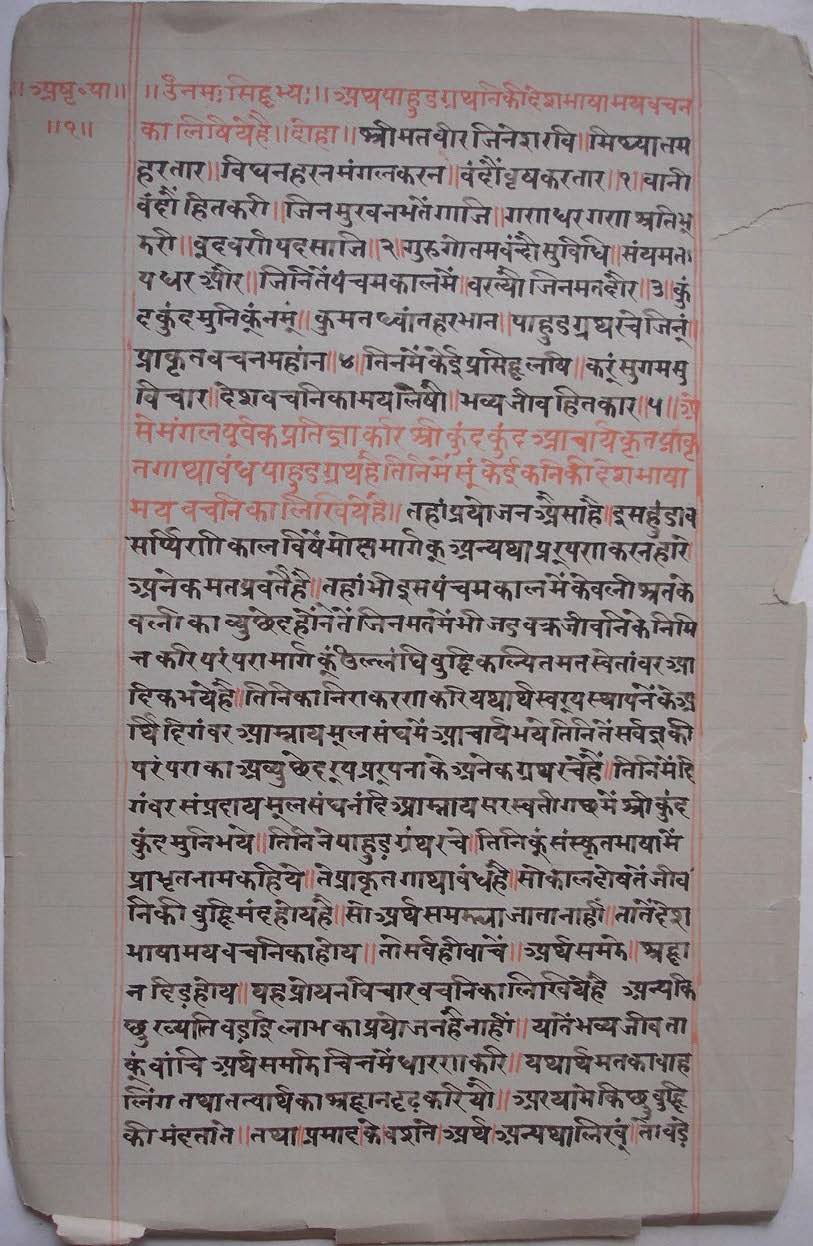 ॥अष्ट॰पा॥ ॥ॐनमः सिद्धेभ्यः॥ अथ पाहुडग्रंथनिकी देशभाषामय वचन
॥१॥ का लिषियेहै॥ दोहा॥ श्रीमतवीरजिनेशरवि॥ मिथ्यातम
हरतार॥ विघनहरन मंगलकरन॥ वंदौं वृषकरतार॥१॥ वानी
वंदौं हितकरी॥ जिनमुखनभतैं गाजि॥ गणधरगण श्रुतिभू
झरी॥ वूदवर्णपद साजि॥२॥ गुरु गोतम वंदौ सुविधि॥ संयमत
पधर और॥ जिनितैं पंचमकालमें॥ वरत्यौ जिनमत दौर॥३॥ कुं
दकुंदमुनिकूं नमूं॥ कुमतध्वांतहर भान॥ पाहुडग्रंथ रचे जिनूं॥
प्राकृत वचन महांन॥४॥ तिनमें केई प्रसिद्ध लषि॥ करूं सुगम सु
विचार॥ देशवचनिकामय लिषौं॥ भव्यजीव हितकार॥५॥ अै
से मंगलपूर्वक प्रतिज्ञा करि श्री कुंदकुंद आचार्यकृत प्राकृ
त गाथावंध पाहुडग्रंथहै तिनिमेंसूं केईकनिकी देशभाषा
मय वचनिका लिखियेहै॥ तहां प्रयोजन अैसाहै॥ इस हुंडाव
सर्प्पिणी कालविषैं मोक्षमार्गकू अन्यथा प्ररूपणा करनहारे
अनेक मत प्रवर्तैहै॥ तहां भी इस पंचमकालमें केवली श्रुतके
वलीका व्युछेद होंनेतें जिनमतमेंभी जड वक्र जीवनिके निमि
त्त करि परंपरा मार्गकूं उल्लंघि वुद्धिकल्पित मत स्वेतांवर आ
दिक भयेहै॥ तिनिका निराकरण करि यथार्थ स्वरूप स्थापनेके अ
र्थि दिगंवर आम्नाय मूलसंघमें आचार्य भये तिनितें सर्वज्ञकी
परंपराका अव्युछेदरूप प्ररूपनाके अनेक ग्रंथ रचेहैं॥ तिनिमें दि
गंवर संप्रदाय मूलसंघ नंदि आम्नाय सरस्वतीगछमें श्री कुंद
कुंद मुनि भये॥ तिनिने पाहुड ग्रंथ रचे॥ तिनिकूं संस्कृत भाषामें
प्राभृत नाम कहिये॥ ते प्राकृत गाथावंधहै॥ सो कालदोषतें जीव
निकी वुद्धि मंद होयहै॥ सो अर्थ समझ्या जाता नाही॥ तातें देश
भाषामय वचनिका होय॥ तो सर्वही वाचें॥ अर्थ समझे॥ श्रद्धा
न द्रिढ़ होय॥ यह प्रोयन विचार वचनिका लिखियेहै अन्य कि
छु ख्याति वड़ाई लाभका प्रयोजन है नाहीं॥ यातें भव्यजीव ता
कूं वांचि अर्थ समझि चित्तमें धारण करि॥ यथार्थ मतका वाह्य
लिंग तथा तत्वार्थका श्रद्धान दृढ करियौ॥ अर यामें किछु वुद्धि
की मंदतातें॥ तथा प्रमादके वशतें अर्थ अन्यथा लिखूं तो वड़े